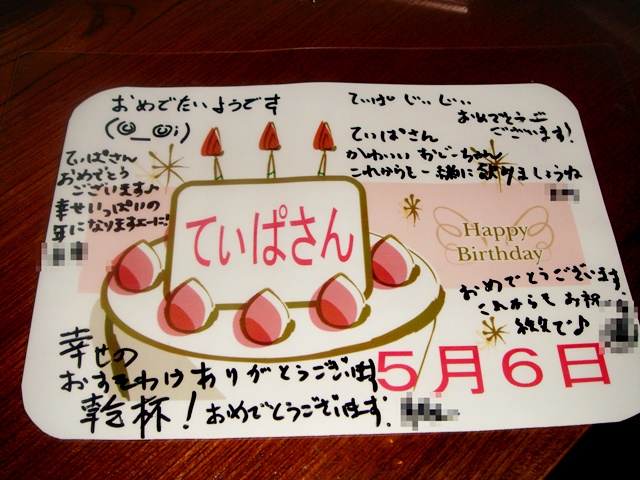 おめでたいようです
(☺_☺;)
てぃぱさん
おめでとう
ございます♪
幸せいっぱいの
年になりますよーに!
てぃぱ じぃじぃ
おめでとうございます!
てぃぱさん
かわいい おじーちゃん
これからも一緒に飲みましょうね
てぃぱさん
Happy
Birthday
おめでとうございます。
これからもお祝い
♪
幸せの
おすそわけありがとうございます
乾杯!おめでとうございます。
5月6日